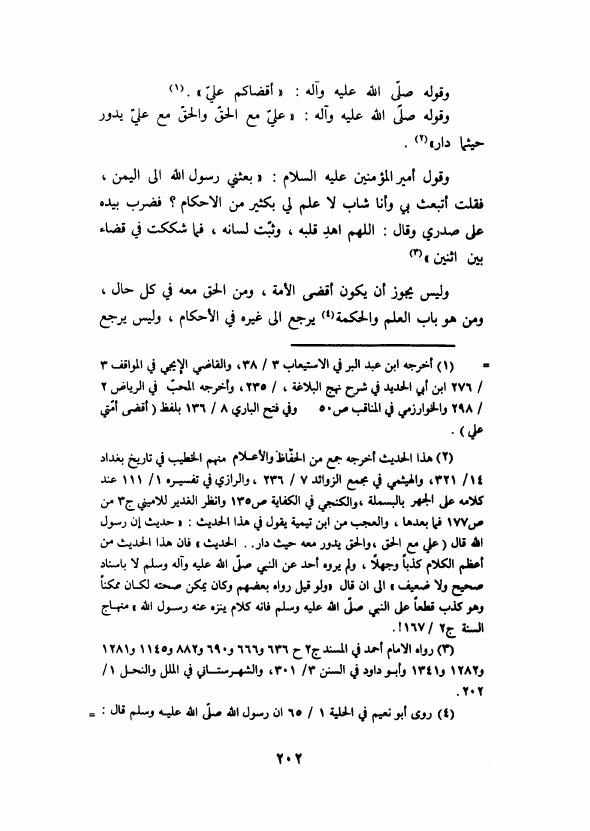 وقوله صلّى الله عليه وآله : « أقضاكم عليّ » .(١)
وقوله صلّى الله عليه وآله : « عليّ مع الحقّ والحقّ مع عليّ يدور
حيثما دار»(٢) .
وقول أمير المؤمنين عليه السلام : « بعثني رسول الله الى اليمن ،
فقلت أتبعث بي وأنا شاب لا علم لي بكثير من الاحكام ؟ فضرب بيده
على صدري وقال : اللهم اهدِ قلبه ، وثبّت لسانه ، فما شككت في قضاء
بين اثنين »(٣)
وليس يجوز أن يكون أقضى الأمة ، ومن الحق معه في كل حال ،
ومن هو باب العلم والحكمة(٤) يرجع الى غيره في الأحكام ، وليس يرجع
= (١) أخرجه ابن عبد البر في الاستيعاب ٣ / ٣٨، والقاضي الإيجي في المواقف ٣
/ ٢٧٦ ابن أبي الحديد في شرح نهج البلاغة ، / ٢٣٥، وأخرجه المحبّ في الرياض ٢
/ ٢٩٨ والخوارزمي في المناقب ص٥٠ وفي فتح الباري ٨ / ١٣٦ بلفظ ( أقضى أمّتي
علي ) .
(٢) هذا الحديث أخرجه جمع من الحفّاظ والأعلام منهم الخطيب في تاريخ بغداد
١٤/ ٣٢١، والهيثمي في مجمع الزوائد ٧ / ٢٣٦ ، والرازي في تفسيره ١/ ١١١ عند
كلامه على الجهر بالبسملة ،والكنجي في الكفاية ص١٣٥ وانظر الغدير للاميني ج٣ من
ص١٧٧ فما بعدها ، والعجب من ابن تيمية يقول في هذا الحديث : « حديث إن رسول
الله قال ( علي مع الحق ،والحق يدور معه حيث دار.. الحديث » فان هذا الحديث من
أعظم الكلام كذباً وجهلاً ، ولم يروه أحد عن النبي صلّى الله عليه وآله وسلم لا باسناد
صحيح ولا ضعيف » الى ان قال «ولو قيل رواه بعضهم وكان يمكن صحته لكان ممكناً
وهو كذب قطعاً على النبي صلّى الله عليه وسلم فانه كلام ينزه عنه رسول الله » منهاج
السنة ج٢ /١٦٧!.
(٣) رواه الامام أحمد في المسند ج٢ ح ٦٣٦ و٦٦٦ و٦٩٠ و٨٨٢ و١١٤٥ و١٢٨١
و١٢٨٢ و١٣٤١ وأبو داود في السنن ٣/ ٣٠١، والشهرستاني في الملل والنحل ١/
٢٠٢ .
(٤) روى أبو نعيم في الحلية ١ / ٦٥ ان رسول الله صلّى الله عليه وسلم قال : =
٢٠٢